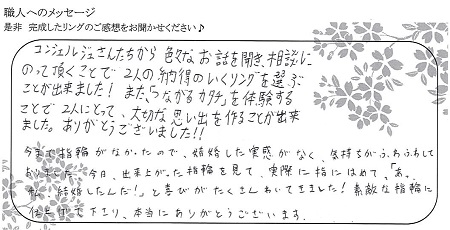 職人へのメッセージ
是非 完成したリングのご感想をお聞かせください♪
コンシェルジュさんたちから 色々な お話を聞き、相談に
のって頂くことで 2人の納得のいくリングを選ぶ
ことが出来ました! また、つながるカタチを体験する
ことで 2人にとって、大切な 思い出を作ることが出来
ました。ありがとうございました!!
今まで指輪がなかったので、結婚した実感がなく、気持ちがふわふわして
おりました。今日、出来上がった指輪を見て、実際に指にはめて、「あ、
私 結婚したんだ!」と喜びがたくさんわいてきました! 素敵な指輪に
仕上げて下さり、本当にありがとうございます。